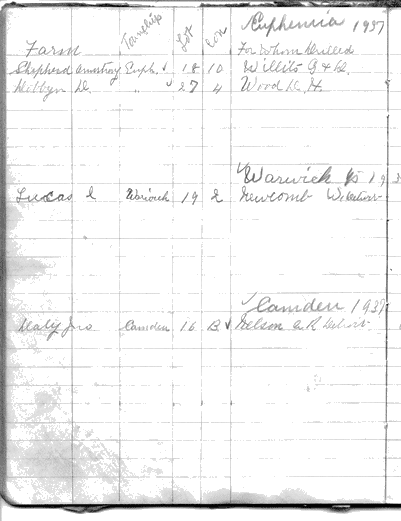 Township Lot Con Euphemia 1937
Farm For Whom Drilled
Shepherd Armstrong Euph. ✓ 18 10 Willits G & H.
D. " ✓ 27 4 Wood D. H.
✓ Warwick 19
Lucas Warwick 19 2 Newcomb
✓ Camden 1937
Jno Camden 16 B ✓ Nelson & R